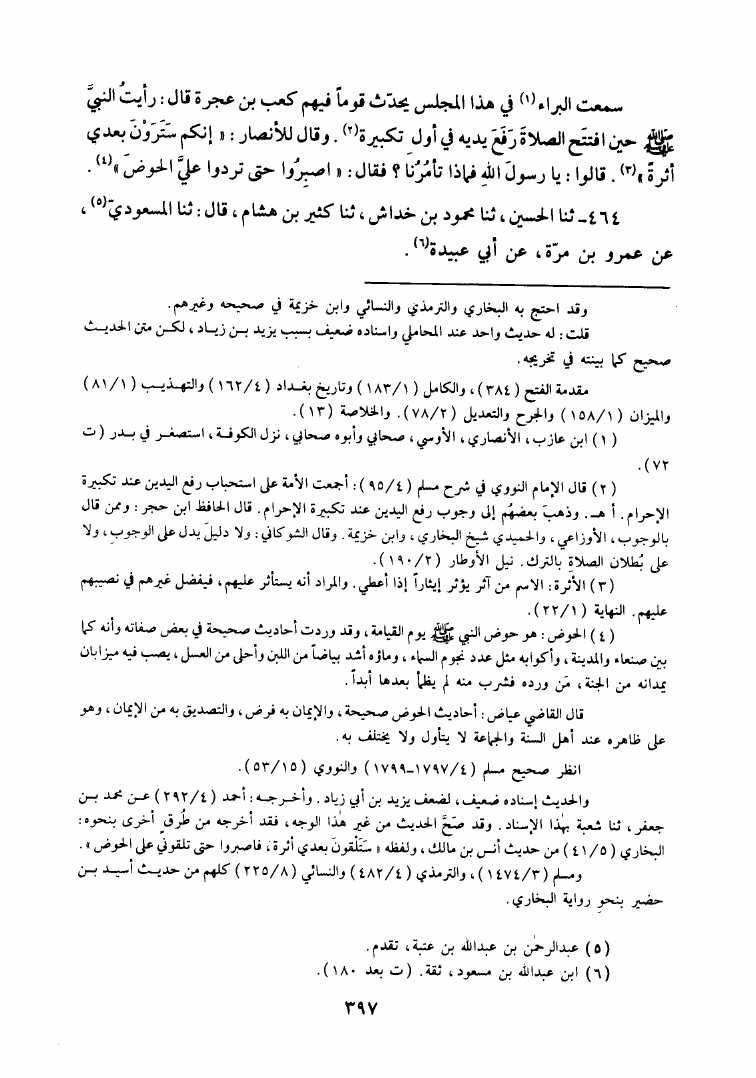 سمعت البراء(١) في هذا المجلس يحدّث قوماً فيهم كعب بن عجرة قال: رأيتُ النبيَّ
ﷺ حين افتتَح الصلاةَ رَفَعَ يديه في أولِ تكبيرة(٢). وقال للأنصار: « إنكم سَتَرَوْنَ بعدي
أثرةً »(٣). قالوا: يا رسولَ اللهِ فماذا تأمُرُنا؟ فقال: « اصبِرُوا حتى تردوا عليَّ الحوضَ »(٤).
٤٦٤- ثنا الحسين، ثنا محمود بن خداش، ثنا كثير بن هشام، قال: ثنا المسعوديّ(٥)،
عن عمرو بن مرّة، عن أبي عبيدة(٦).
وقد احتج به البخاري والترمذي والنسائي وابن خزيمة في صحيحه وغيرهم.
قلت: له حديث واحد عند المحاملي واسناده ضعيف بسبب يزيد بن زياد، لكن متن الحديث
صحيح كما بينته في تخريجه.
مقدمة الفتح (٣٨٤)، والكامل (١٨٣/١) وتاريخ بغداد (١٦٢/٤) والتهذيب (٨١/١)
والميزان (١٥٨/١) والجرح والتعديل (٧٨/٢). والخلاصة (١٣).
(١) ابن عازب، الأنصاري، الأوسي، صحابي وأبوه صحابي، نزل الكوفة، استصغر في بدر (ت
٧٢).
(٢) قال الإمام النووي في شرح مسلم (٩٥/٤): أجمعت الأمة على استحباب رفع اليدين عند تكبيرة
الإحرام. أ هـ. وذهبَ بعضهُم إلى وجوب رفع اليدين عند تكبيرة الإحرام. قال الحافظ ابن حجر: وممن قال
بالوجوب، الأوزاعي، والحميدي شيخ البخاري، وابن خزيمة. وقال الشوكاني: ولا دليلَ يدل على الوجوب، ولا
على بُطلان الصلاةِ بالترك. نيل الأوطار (١٩٠/٢).
(٣) الأثرة: الاسم من آثر يؤثر إيثاراً إذا أعطي. والمراد أنه يستأثر عليهم، فيفضل غيرهم في نصيبهم
عليهم. النهاية (٢٢/١).
(٤) الحوض: هو حوض النبي ﷺ يوم القيامة، وقد وردت أحاديث صحيحة في بعض صفاته وأنه كما
بين صنعاء والمدينة، وأكوابه مثل عدد نجوم السماء، وماؤه أشد بياضاً من اللبن وأحلى من العسل، يصب فيه ميزابان
يمدانه من الجنة، مَن ورده فشرب منه لم يظمأ بعدها أبداً.
قال القاضي عياض: أحاديث الحوض صحيحة، والإيمان به فرض، والتصديق به من الإيمان، وهو
على ظاهره عند أهل السنة والجماعة لا يتأول ولا يختلف به.
انظر صحيح مسلم (١٧٩٧/٤-١٧٩٩) والنووي (٥٣/١٥).
والحديث إسناده ضعيف، لضعف يزيد بن أبي زياد. وأخرجه: أحمد (٢٩٢/٤) عن محمد بن
جعفر، ثنا شعبة بهٰذا الإسناد. وقد صَحَّ الحديث من غير هٰذا الوجه، فقد أخرجه من طُرقٍ أخرى بنحوه:
البخاري (٤١/٥) من حديث أنس بن مالك، ولفظه « ستَلْقونَ بعدي أثرة، فاصبروا حتى تلقوني على الحوض ».
ومسلم (١٤٧٤/٣)، والترمذي (٤٨٢/٤) والنسائي (٢٢٥/٨) كلهم من حديث أسيد بن
حضير بنحوِ رواية البخاري.
(٥) عبدالرحمٰن بن عبدالله بن عتبة، تقدم.
(٦) ابن عبدالله بن مسعود، ثقة. (ت بعد ١٨٠).
٣٩٧